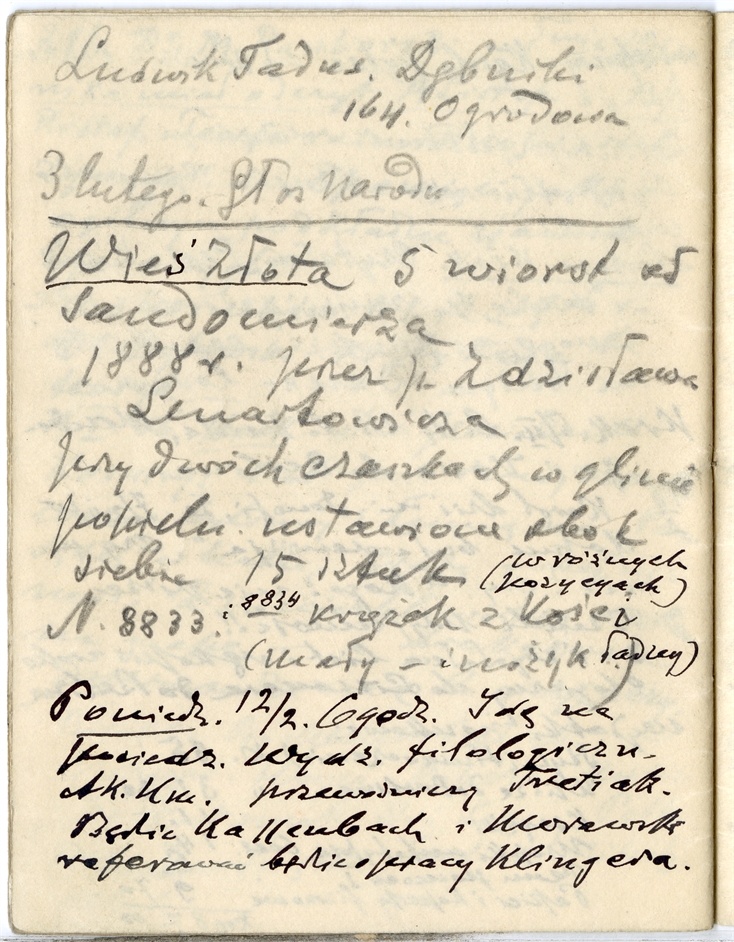 Ludwik Tadeu. Dębnicki
164. Ogrodowa
3 lutego. Głos Narodu
Wieś Złota 5 wiorst od
Sandomierza
1888 r. przez p. Zdzisława
Lenartowicza
przy dwóch czaszkach w glinie
popielu. ustawione obok
siebie 15 sztuk (w różnych
pozycyach)
N. 8833. i 8834 krążek z kości
(mały – i nożyk ładny)
Poniedz. 12/2. 6 godz. Idę na
posiedz. Wydz. filologiczn.
Ak. Um. przewodniczy Tretiak.
Będzie Kallenbach i Morawski
referować będzie o pracy Klingera.